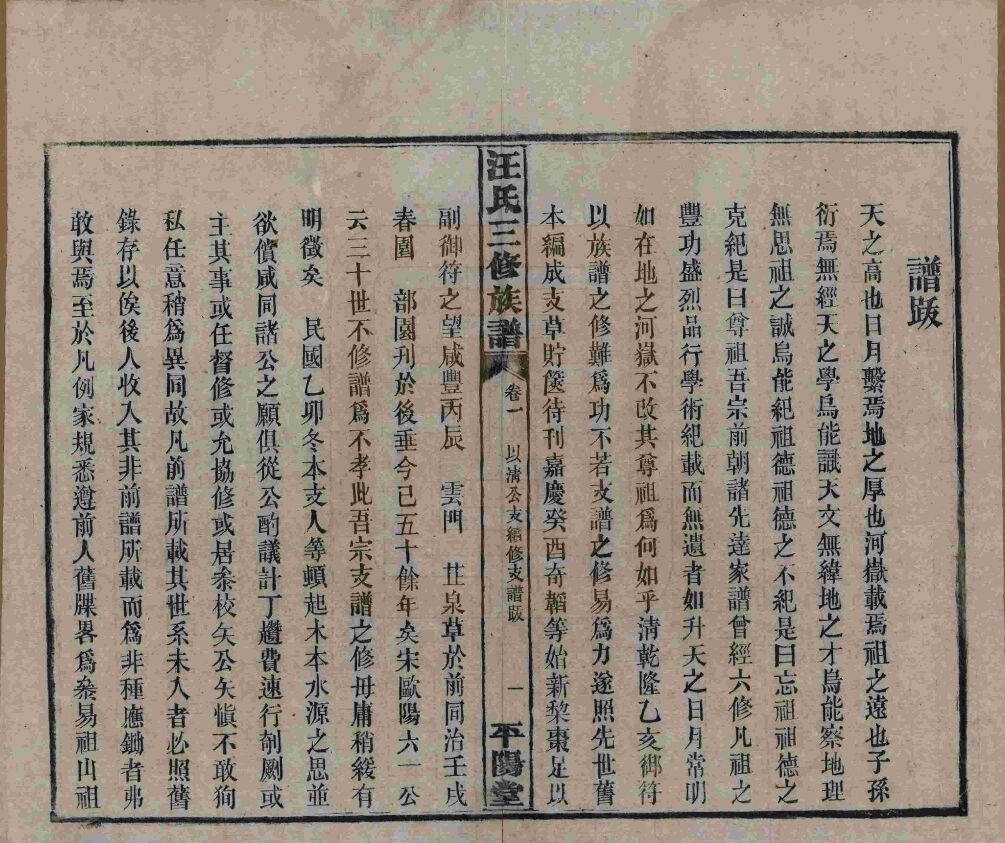 譜跋
天之高也日月繫焉地之厚也河嶽載焉祖之遠也子孫
衍焉無經天之學烏能識天文無緯地之才烏能察地理
無思祖之誠烏能紀祖德祖德之不紀是曰忘祖祖德之
克紀是曰尊祖吾宗前朝諸先達家譜曾經六修凡祖之
豐功盛烈品行學術紀載而無遺者如升天之日月常明
如在地之河嶽不改其尊祖爲何如乎清乾隆乙亥御符
以族譜之修難爲功不若支譜之修易爲力遂照先世舊
本編成支草貯篋待刊嘉慶癸酉奇韜等始新棃棗足以
汪氏三修族譜
卷一
以清公支續修支譜跋
一
平陽堂
副御符之望咸豐丙辰 雲門 芷泉草於前同治壬戌
春園 部園刊於後垂今已五十餘年矣宋歐陽六一公
云三十世不修譜爲不孝此吾宗支譜之修毋庸稍緩有
明徵矣 民國乙卯冬本支人等頓起木本水源之思並
欲償咸同諸公之願俱從公酌議計丁攢費速行剞劂或
主其事或任督修或允協修或居叅校矢公矢愼不敢狥
私任意稍爲異同故凡前譜所載其世系未入者必照舊
錄存以俟後人收入其非前譜所載而爲非種應鋤者弗
敢與焉至於凡例家規悉遵前人舊牒畧爲叅易祖山祖